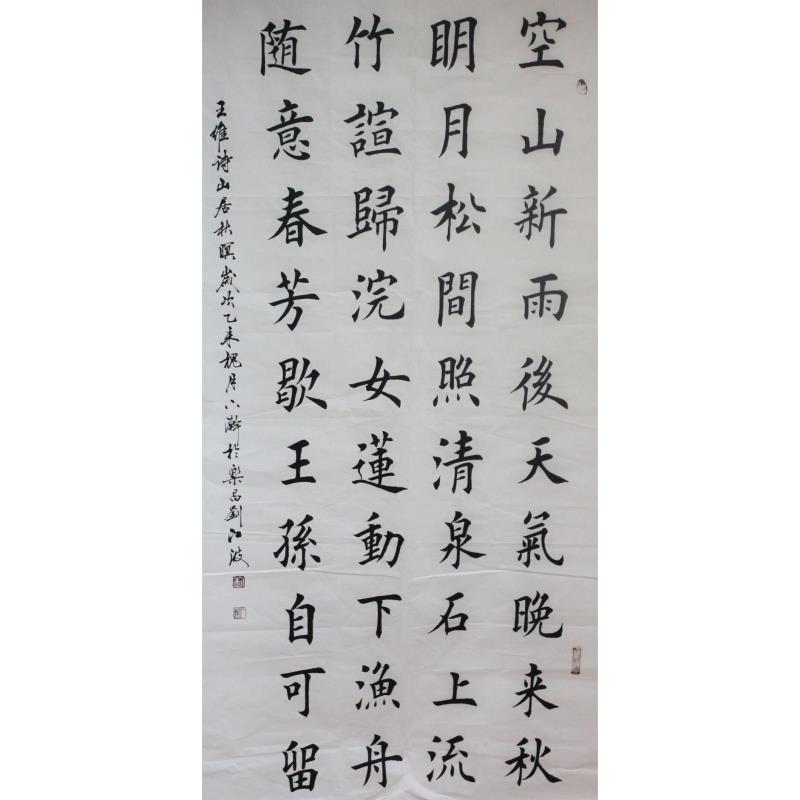 空山新雨後天氣晚来秋
明月松間照清泉石上流
竹諠歸浣女蓮動下漁舟
随意春芳歇王孫自可留
王維诗山居秋暝歲次乙未槐月下澣於樂昌劉江波